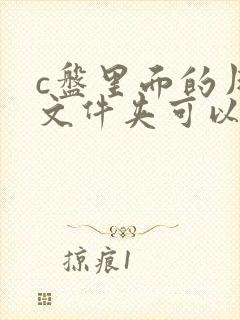 c盘里面的
文件夹可以
掠痕1